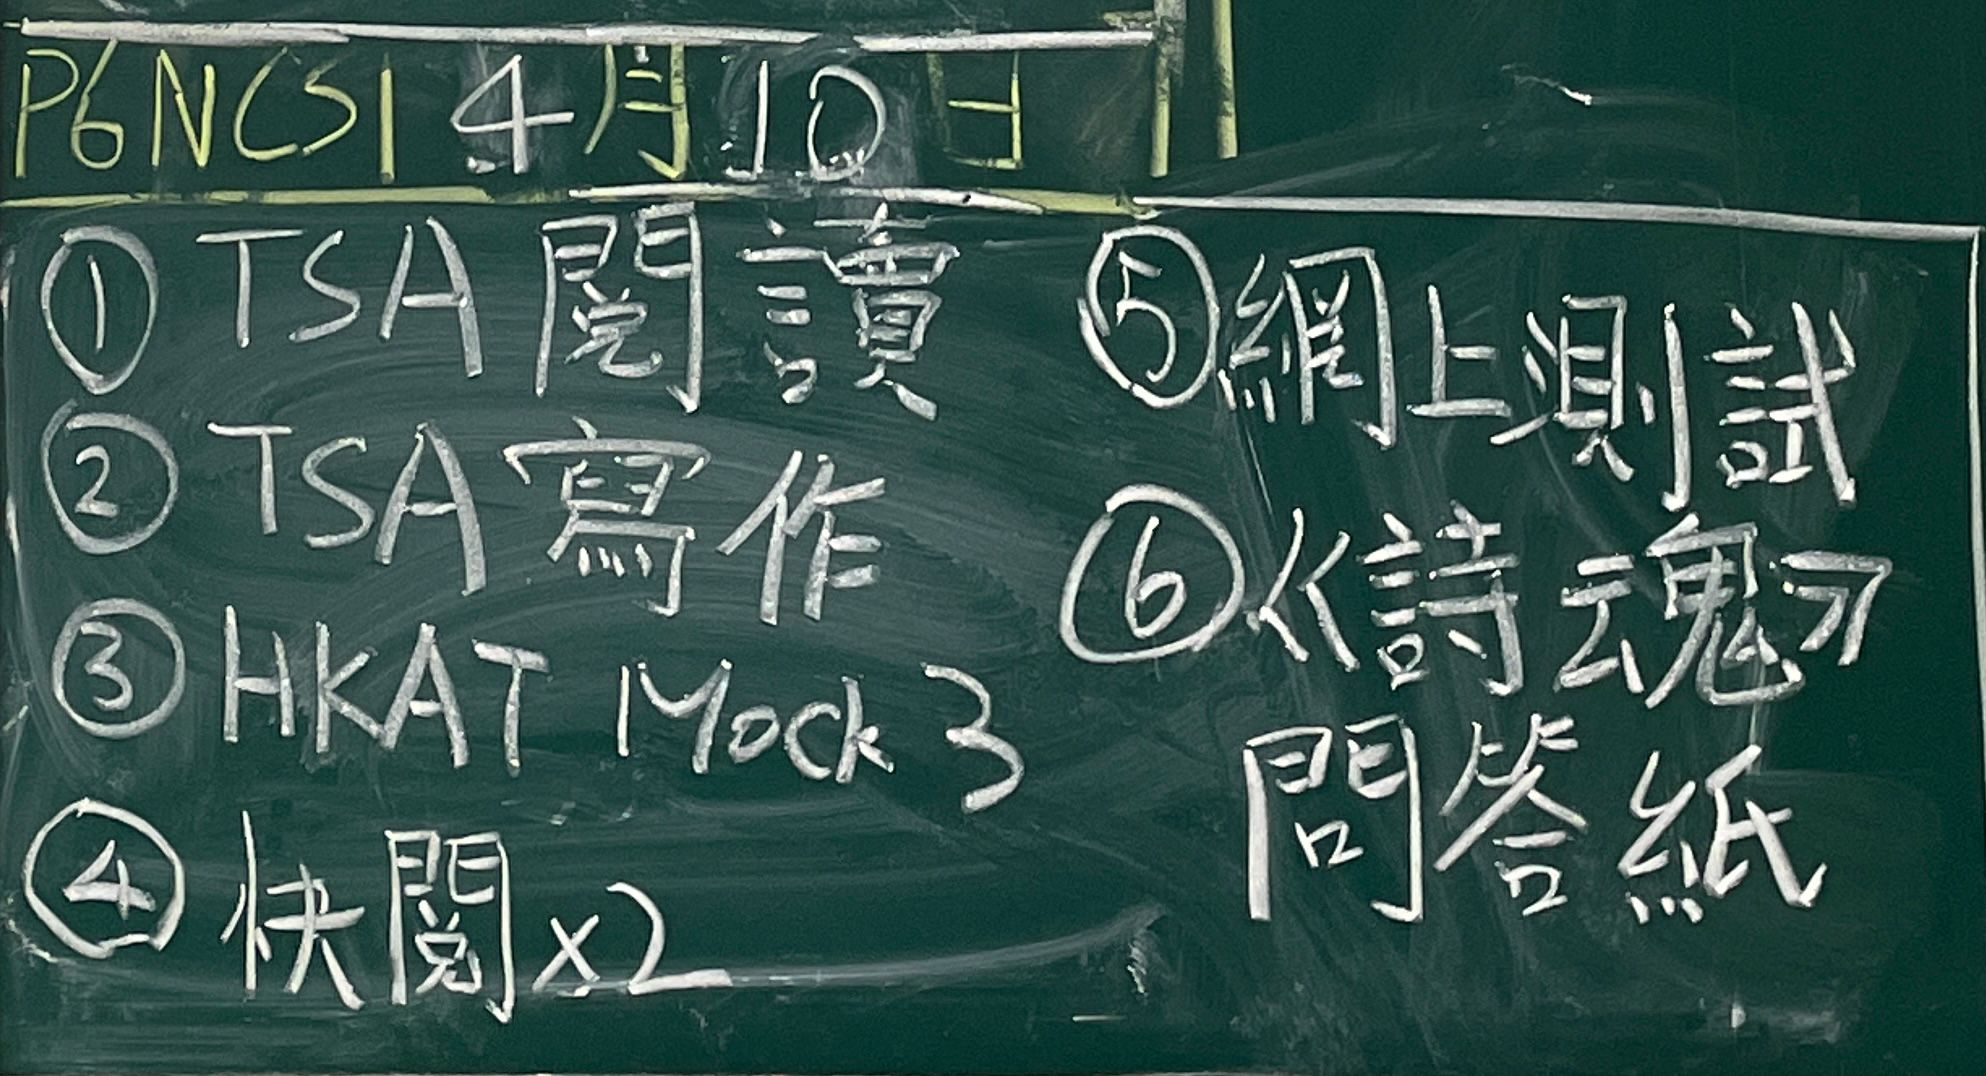 P6NCS1 4月10日
① TSA 閱讀
② TSA 寫作
③ HKAT Mock 3
④ 快閱 x2
⑤ 網上測試
⑥ 《詩魂》
問答紙